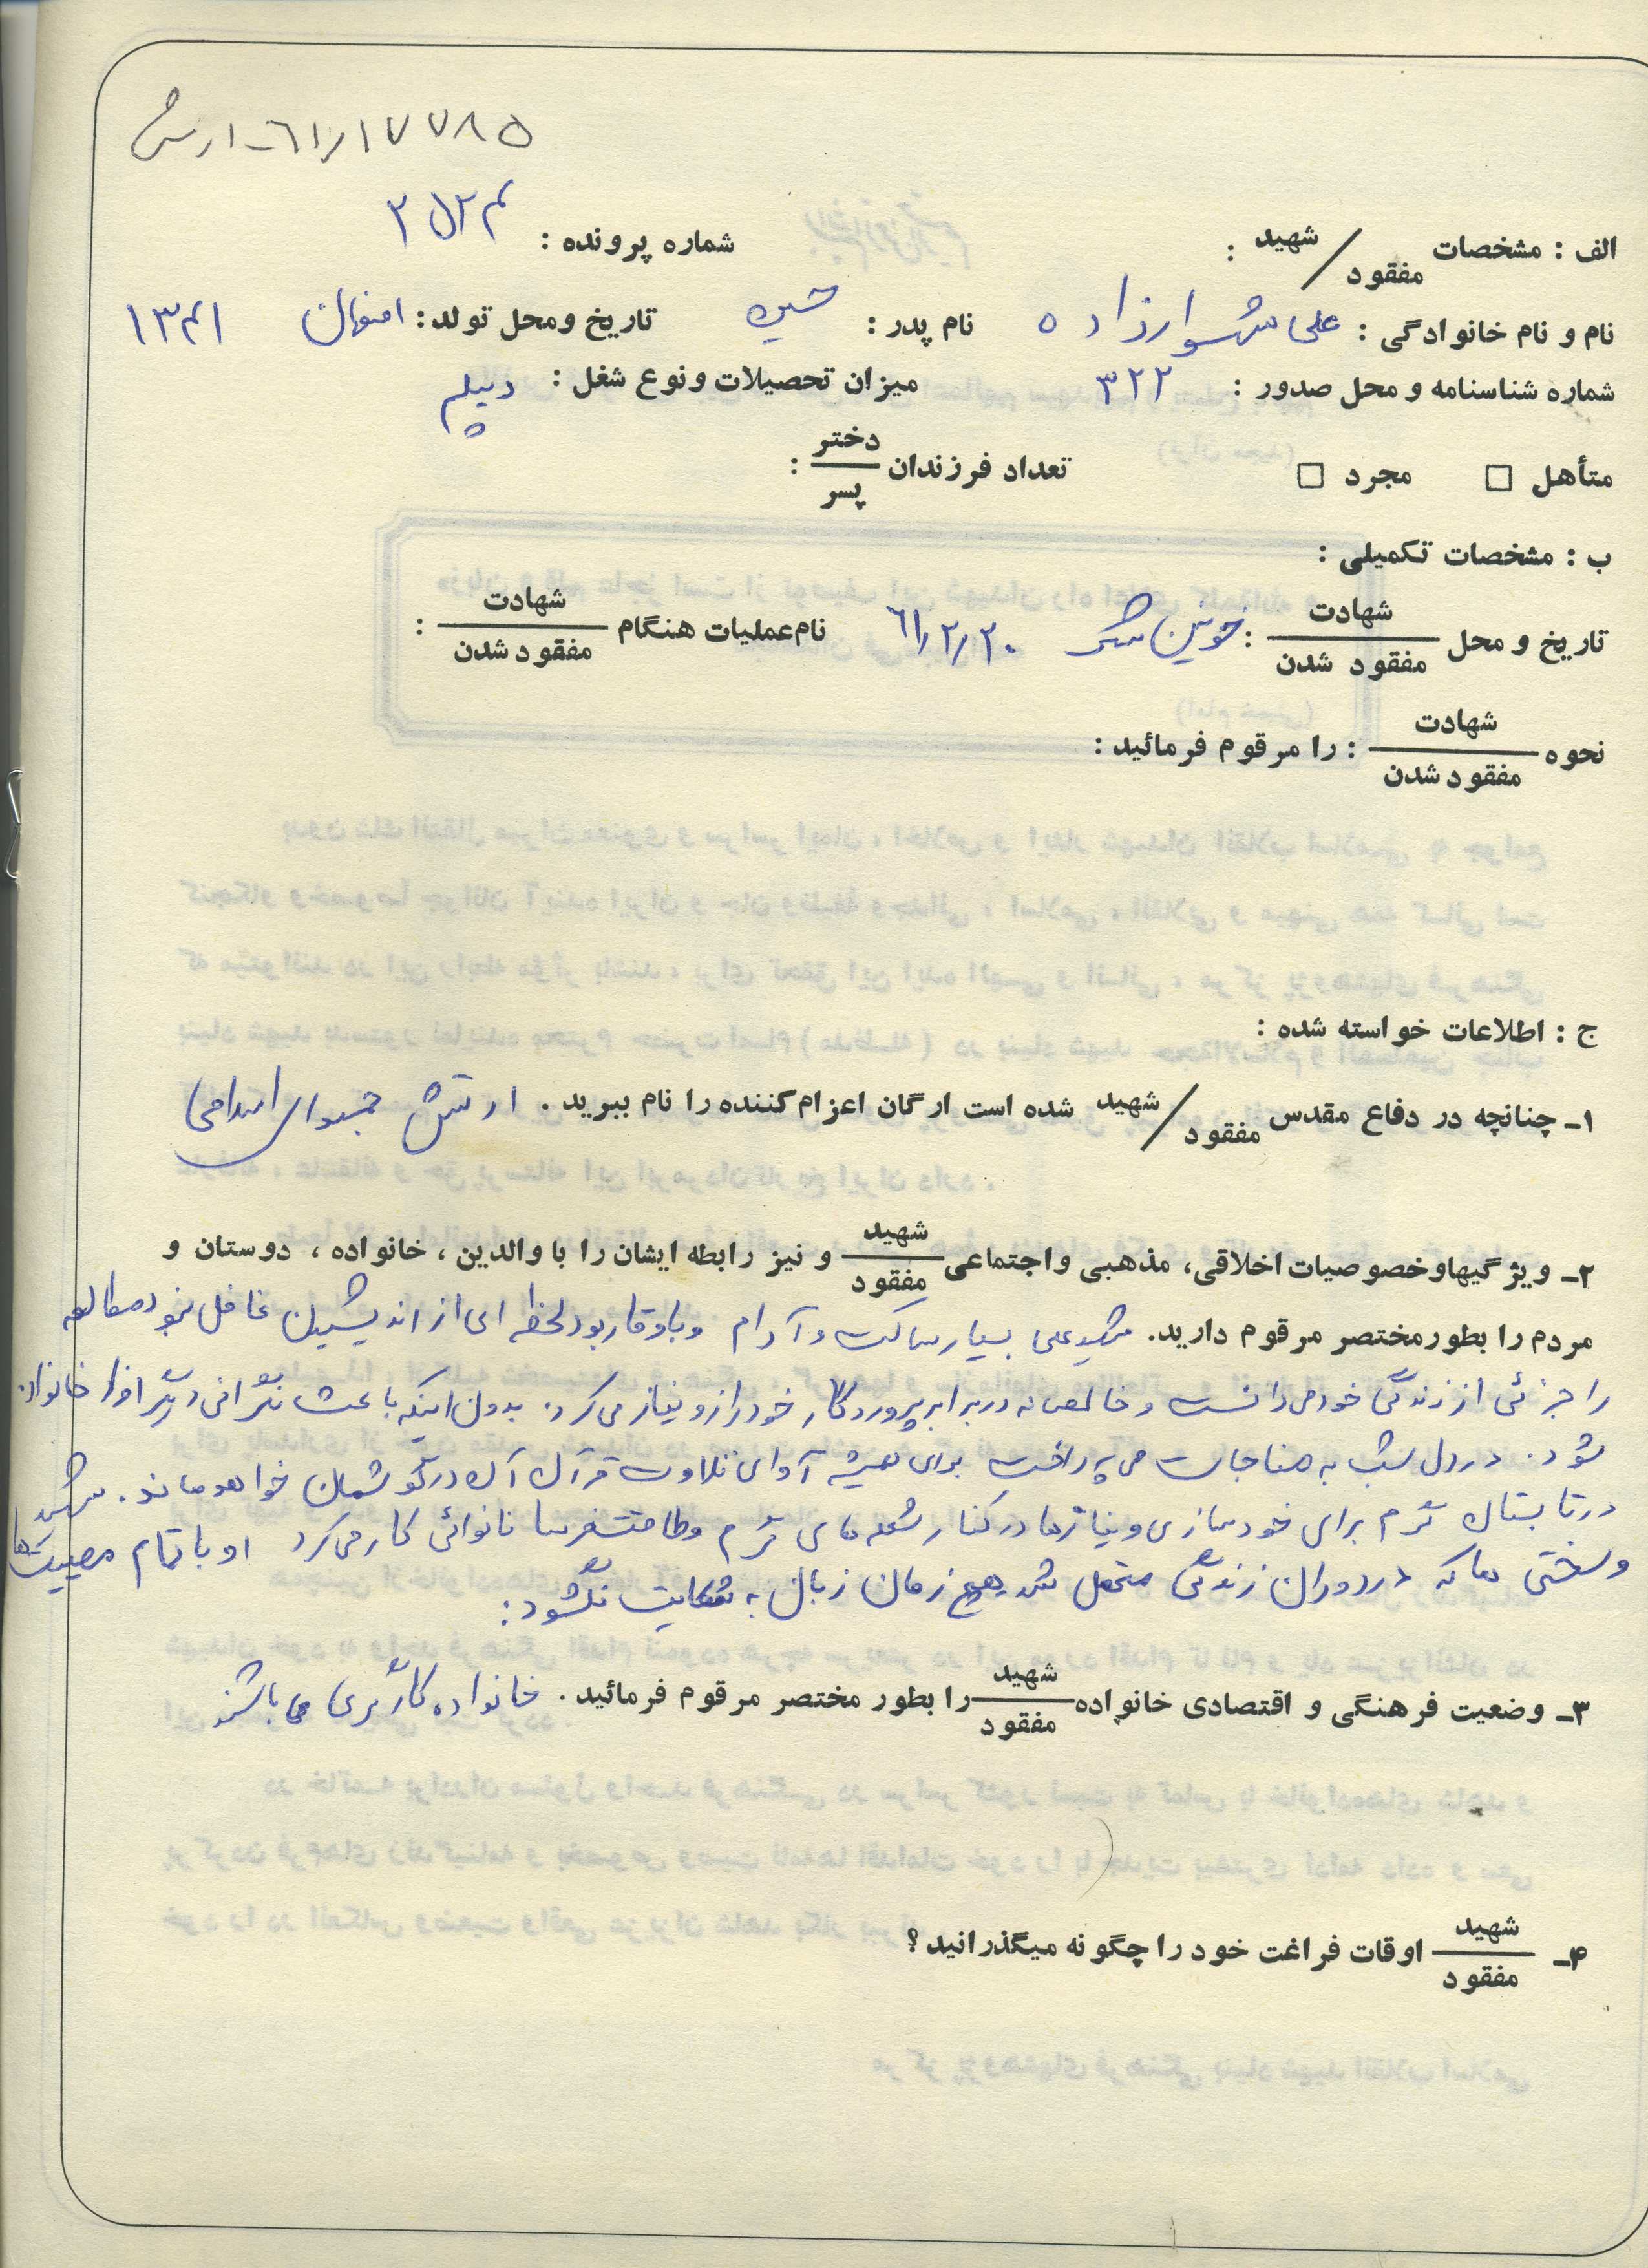 ۶۱/۱۷۷۸۵-ارتش
الف : مشخصات شهید / مفقود :
شماره پرونده : ۲۵۲۴
نام و نام خانوادگی : علی شهسوارزاده نام پدر : حسین تاریخ و محل تولد : اصفهان ۱۳۴۱
شماره شناسنامه و محل صدور : ۳۲۲ میزان تحصیلات و نوع شغل : دیپلم
متأهل □ مجرد □ تعداد فرزندان دختر / پسر :
ب : مشخصات تکمیلی :
تاریخ و محل شهادت / مفقود شدن : خونین شهر ۶۱/۲/۲۰ نام عملیات هنگام شهادت / مفقود شدن :
نحوه شهادت / مفقود شدن : را مرقوم فرمائید :
ج : اطلاعات خواسته شده :
۱ـ چنانچه در دفاع مقدس شهید / مفقود شده است ارگان اعزام کننده را نام ببرید . ارتش جمهوری اسلامی
۲ـ ویژگیها و خصوصیات اخلاقی، مذهبی و اجتماعی شهید / مفقود و نیز رابطه ایشان را با والدین ، خانواده ، دوستان و
مردم را بطور مختصر مرقوم دارید. شهید علی بسیار ساکت و آرام و باوقار بود لحظه ای از اندیشیدن غافل نبود مطالعه
را جزئی از زندگی خود می دانست و خالصانه در برابر پروردگار خود راز و نیاز می کرد. بدون اینکه باعث نگرانی دیگر افراد خانواده
شود. در دل شب به مناجات می پرداخت برای همیشه آوای تلاوت قرآن آن در گوشمان خواهد ماند. شهید
در تابستان گرم برای خودسازی و نیازها در کنار شعله های گرم و طاقت فرسا نانوائی کار می کرد او با تمام مصیبت ها
و سختی ها که در دوران زندگی متحمل شد هیچ زمان زبان به شکایت نگشود :
۳ـ وضعیت فرهنگی و اقتصادی خانواده شهید / مفقود را بطور مختصر مرقوم فرمائید . خانواده کارگری می باشند
۴ـ شهید / مفقود اوقات فراغت خود را چگونه میگذرانید ؟